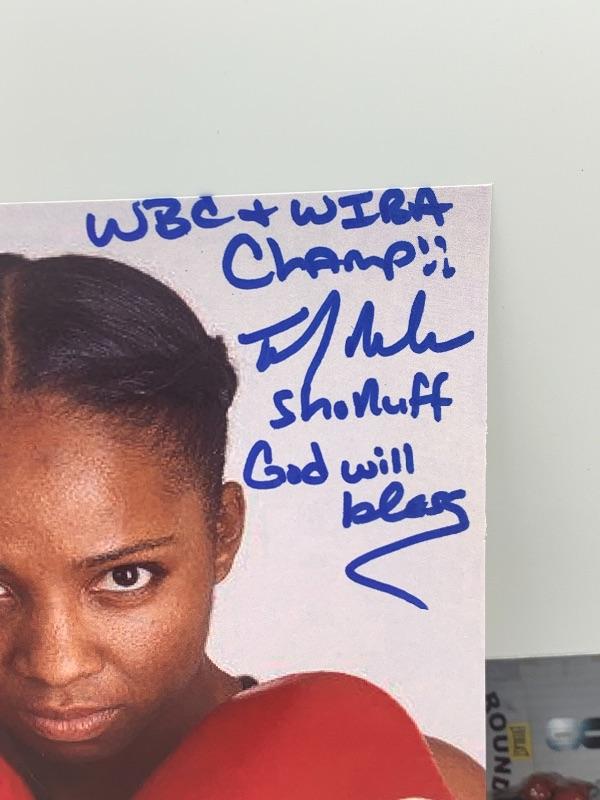 WBC + WIBA
CHAMP!!
Sho.Nuff
God will
bless
ROUND